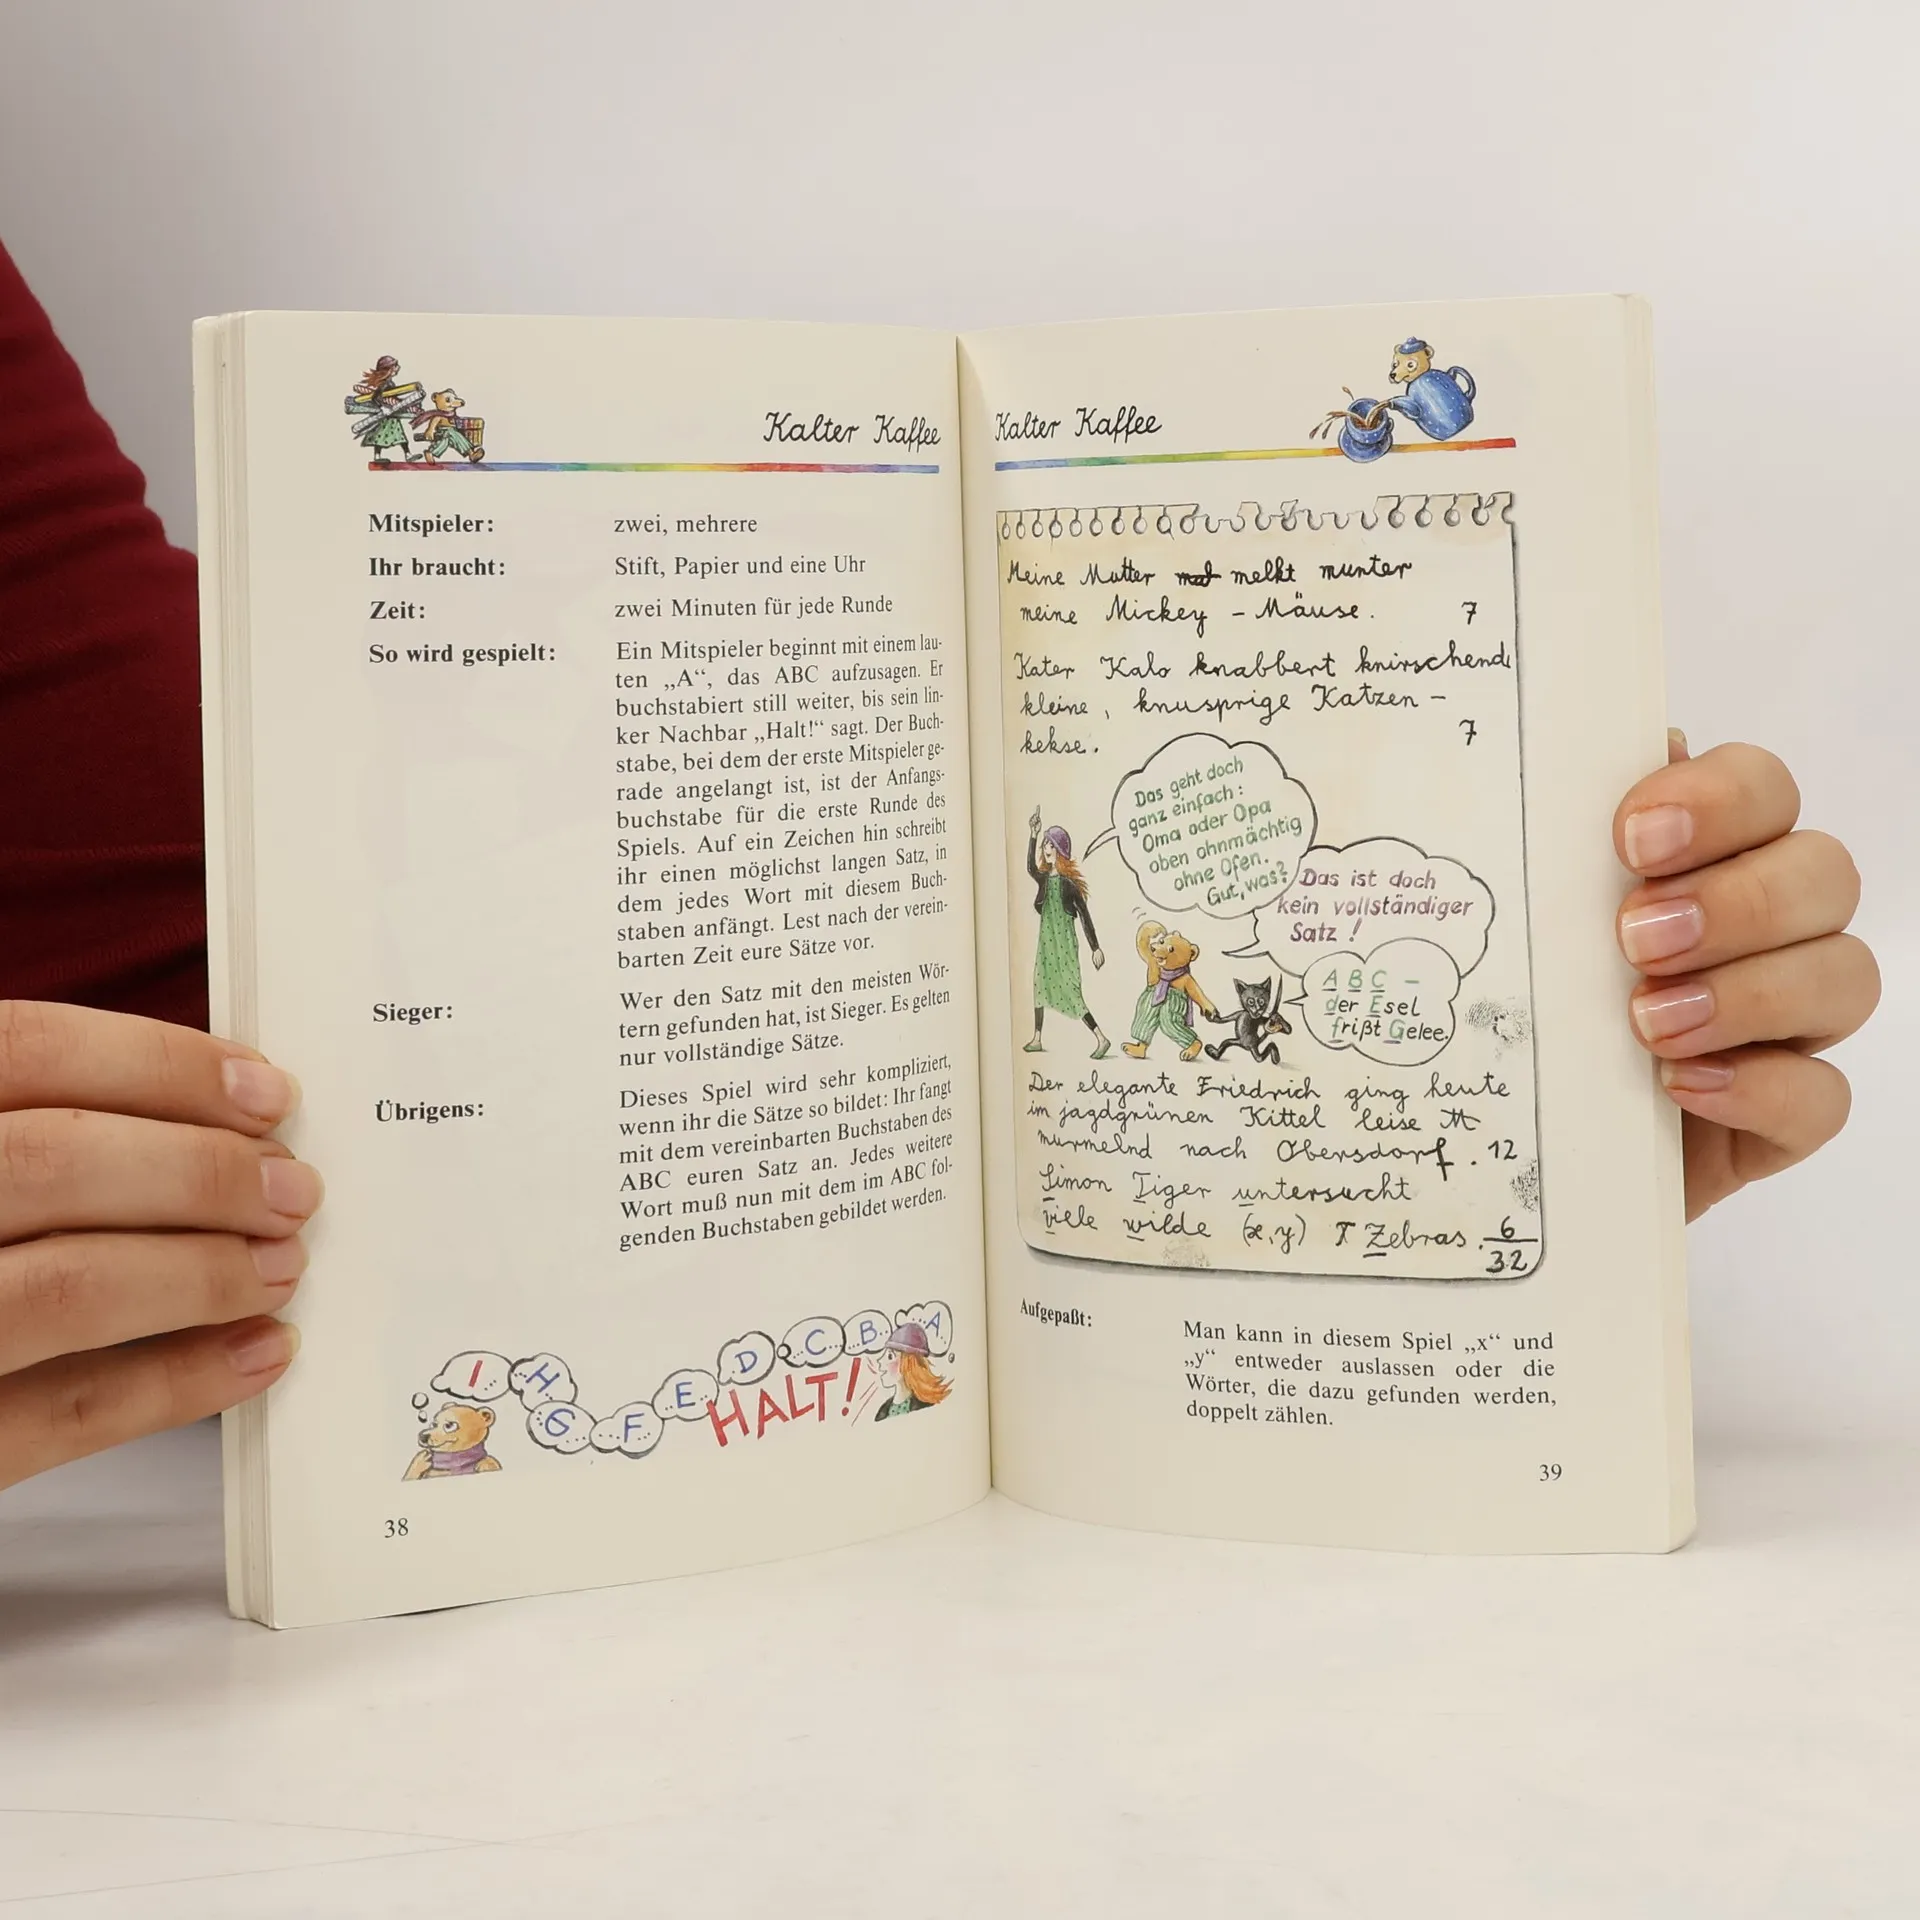 Kalter Kaffee
Mitspieler: zwei, mehrere
Ihr braucht: Stift, Papier und eine Uhr
Zeit: zwei Minuten für jede Runde
So wird gespielt: Ein Mitspieler beginnt mit einem lau-
ten „A“, das ABC aufzusagen. Er
buchstabiert still weiter, bis sein lin-
ker Nachbar „Halt!“ sagt. Der Buch-
stabe, bei dem der erste Mitspieler ge-
rade angelangt ist, ist der Anfangs-
buchstabe für die erste Runde des
Spiels. Auf ein Zeichen hin schreibt
ihr einen möglichst langen Satz, in
dem jedes Wort mit diesem Buch-
staben anfängt. Lest nach der verein-
barten Zeit eure Sätze vor.
Sieger: Wer den Satz mit den meisten Wör-
tern gefunden hat, ist Sieger. Es gelten
nur vollständige Sätze.
Übrigens: Dieses Spiel wird sehr kompliziert,
wenn ihr die Sätze so bildet: Ihr fangt
mit dem vereinbarten Buchstaben des
ABC euren Satz an. Jedes weitere
Wort muß nun mit dem im ABC fol-
genden Buchstaben gebildet werden.
I H G F E D C B A
HALT!
38
Kalter Kaffee
Meine Mutter melkt munter
meine Mickey - Mäuse. 7
Kater Kalo knabbert knirschend
kleine, knusprige Katzen -
kekse. 7
Das geht doch
ganz einfach:
Oma oder Opa
oben ohnmächtig
ohne Ofen.
Gut, was?
Das ist doch
kein vollständiger
Satz!
A B C -
der Esel
frißt Gelee.
Der elegante Friedrich ging heute
im jagdgrünen Kittel leise M
murmelnd nach Obersdorf. 12
Simon Tiger untersucht
viele wilde (x,y) Zebras. 6
32
Aufgepaßt: Man kann in diesem Spiel „x“ und
„y“ entweder auslassen oder die
Wörter, die dazu gefunden werden,
doppelt zählen.
39